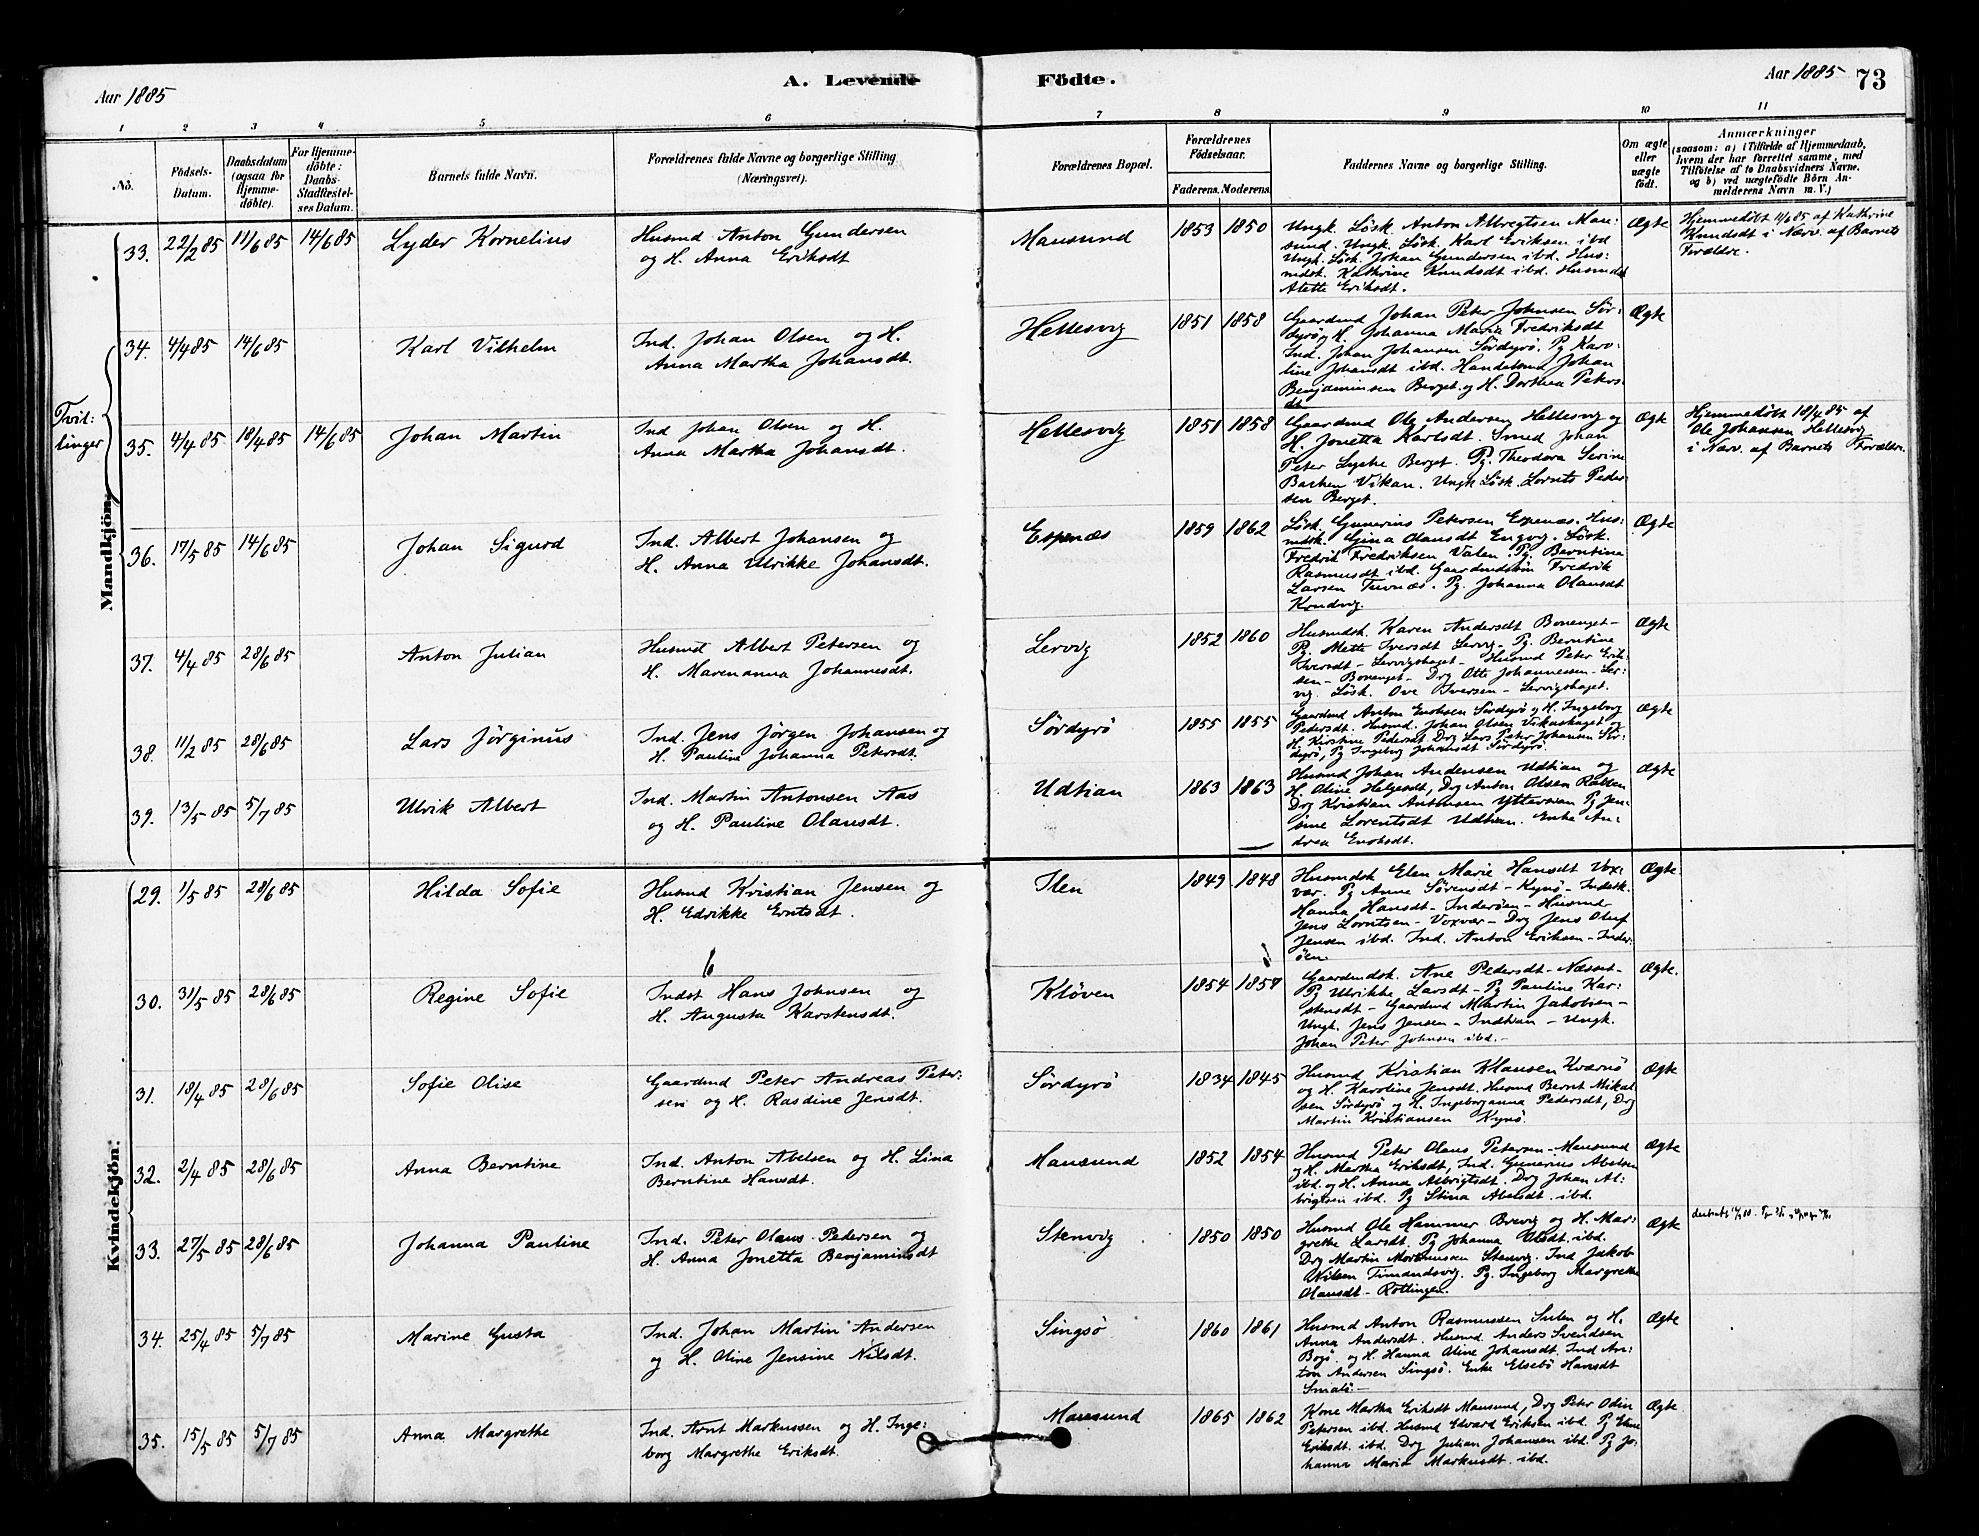 A. Levende Födte.
Aar 1885
Aar 1885 73
1 2 3 4 5 6 7 8 9 10 11
No.
Fødsels-Datum.
Daabsdatum (ogsaa for Hjemmedöbte).
For Hjemmedöbte: Daabs-Stadfæstelses Datum.
Barnets fulde Navn.
Forældrenes fulde Navne og borgerlige Stilling (Næringsvei).
Forældrenes Bopæl.
Forældrenes Födselsaar.
Faderens. Moderens.
Faddernes Navne og borgerlige Stilling.
Om ægte eller uægte födt.
Anmærkninger
(saasom: a) i Tilfælde af Hjemmedaab, hvem der har forrettet samme, med Tilföielse af to Daabsvidners Navne. og b) ved uægtefödte Börn Anmelderens Navn m. V.)
Mandkjön:
Tvillinger
33. 22/2 85 11/6 85 14/6 85 Lyder Kornelius
Husmd Anton Gundersen
og H. Anna Eriksdt
Mausund 1853 1850
Ungk. Lösk. Anton Albregtsen Mau-
sund. Ungk. Lösk. Karl Eriksen ibd
Ungk. Lösk. Johan Gundersen ibd. Hus-
mdsk. Kathrine Knudsdt ibd. Husmdsk
Alette Eriksdt.
Ægte
Hjemmedöbt 11/6 85 af Kathrine
Knudsdt i Nærv. af Barnets
Forældre.
34. 4/4 85 14/6 85 Karl Vilhelm
Ind. Johan Olsen og H.
Anna Martha Johansdt.
Hellesvig 1851 1858
Gaardmd Johan Peter Johnsen Sör-
dyrö og H. Johanna Maria Fredriksdt
Ind. Johan Johansen Sördyrö. Pg Karo-
line Johansdt ibd. Handelsmd Johan
Benjaminsen Berget og H. Dorthea Peters-
dt.
Ægte
35. 4/4 85 18/4 85 14/6 85 Johan Martin
Ind Johan Olsen og H.
Anna Martha Johansdt.
Hellesvig 1851 1858
Gaardmd Ole Andersen Hellesvig og
H. Jonetta Karlsdt. Smed Johan
Peter Lyshe Berget. Pg. Theodora Serine
Bachen Vikan. Ungk Lösk. Lornts Peder-
sen Berget.
Ægte
Hjemmedöbt 18/4 85 af
Ole Johansen Hellesvig
i Nærv. af Barnets Forældre.
36. 17/5 85 14/6 85 Johan Sigurd
Ind. Albert Johansen og
H. Anna Ulrikke Johansdt.
Espenæs 1859 1862
Lösk. Gunerius Petersen Espenæs. Hus-
mdsk. Gina Olausdt Engvig. Lösk.
Fredrik Fredriksen Valen. Pg. Berntina
Rasmusdt ibd. Gaardmdssön Fredrik
Larsen Tuvnæs. Pg. Johanna Olausdt
Kondvig.
Ægte
37. 4/4 85 28/6 85 Anton Julian
Husmd Albert Petersen og
H. Marenanna Johannesdt.
Lervig 1852 1860
Husmdsk. Karen Andersdt Bonenget-
Pg. Mette Iversdt Lervig- Pg. Berntine
Iversdt- Lervigshaget- Husmd Peter Erik-
sen- Bonenget- Drg Otte Johannessen- Ler-
vig. Lösk. Ove Iversen- Lervigshaget.
Ægte
38. 11/2 85 28/6 85 Lars Jörginus
Ind. Jens Jörgen Johansen og
H. Pauline Johanna Petersdt.
Sördyrö 1855 1855
Gaardmd Anton Enoksen Sördyrö og H. Ingeborg
Pedersdt. Husmd. Johan Olsen Vikashaget og
H. Kirstine Pedersdt Drg Lars Peter Johansen Sör-
dyrö, Pg Ingeborg Johansdt Sördyrö.
Ægte
39. 13/5 85 5/7 85 Ulrik Albert
Ind. Martin Antonsen Aas
og H. Pauline Olausdt.
Udtian 1863 1863
Husmd Johan Andersen Udtian og
H. Oline Helgesdt, Drg Anton Olsen Ratten
Drg Kristian Antonsen Yttersian Pg Jen-
sine Lorentsdt Udtian. Enke An-
drea Enoksdt.
Ægte
Kvindekjön:
29. 1/5 85 28/6 85 Hilda Sofie
Husmd Kristian Jensen og
H. Edrikke Erntsdt.
Ilen 1849 1848
Husmdsk Elen Marie Hansdt Vox-
vær. Pg Anne Sörensdt- Kynö- Indstk.
Hanna Hansdt- Inderöen- Husmd
Jens Lorntsen- Voxvær- Drg Jens Oluf
Jensen ibd. Ind. Anton Eriksen- Inder-
öen
Ægte
30. 31/5 85 28/6 85 Regine Sofie
Indst Hans Johnsen og
H. Augusta Karstensdt.
Klöven 1854 1857
Gaardmdsk. Ane Pedersdt- Næsset-
Pg Ulrikke Larsdt- Pg Pauline Kar-
stensdt- Gaardmd Martin Jakobsen-
Ungk. Jens Jensen- Indtian- Ungk.
Johan Peter Johnsen ibd.-
Ægte.
31. 18/4 85 28/6 85 Sofie Olise
Gaardmd Peter Andreas Peter-
sen og H. Rasdine Jensdt.
Sördyrö 1834 1845
Husmd Kristian Klausen Kværnö
og H. Karoline Jensdt. Husmd Bernt Mikal-
sen Sördyrö og H. Ingeborganna Pedersdt, Drg
Martin Kristiansen Kynö.
Ægte
32. 2/4 85 28/6 85 Anna Berntine
Ind. Anton Abelsen og H. Lina
Berntine Hansdt.
Mausund 1852 1854
Husmd Peter Olaus Petersen- Mausund
og H. Martha Eriksdt, Ind. Gunerius Abelsen
ibd. og H. Anna Albrigtsdt. Drg Johan Al-
brigtsen ibd. Pg Stina Abelsdt. ibd.
Ægte
33. 27/5 85 28/6 85 Johanna Pauline
Ind. Peter Olaus Petersen og
H. Anna Jonetta Benjaminsdt
Stenvig 1850 1850
Husmd Ole Hammer Brevig og H. Mar-
grethe Larsdt. Pg Johanna Olsdt. ibd.
Drg Martin Mortensen Stenvig. Ind Jakob
Nilsen Timandsvig. Pg. Ingeborg Margrethe
Olausdt- Rottingen.
Ægte
34. 25/4 85 5/7 85 Marine Gusta
Ind. Johan Martin Andersen
og H. Oline Jensine Nilsdt.
Singsö 1860 1861
Husmd Anton Rasmussen Sulen og H.
Anna Andersdt. Husmd. Anders Svendsen
Bogö. og H. Hanna Oline Johansdt. Ind An-
ton Andersen Singsö. Enke Elsebö Hansdt
Smalö-
Ægte
35. 15/5 85 5/7 85 Anna Margrethe
Ind. Arnt Markussen og H. Inge-
borg Margrethe Eriksdt.
Mausund 1865 1862
Kone Martha Eriksdt Mausund, Drg Peter Odin
Petersen ibd. Husmd Edvard Eriksen ibd. Pg Eline
Eriksdt. ibd. Drg Julian Johansen ibd. Pg Jo-
hanna Maria Markusdt. ibd.
Ægte